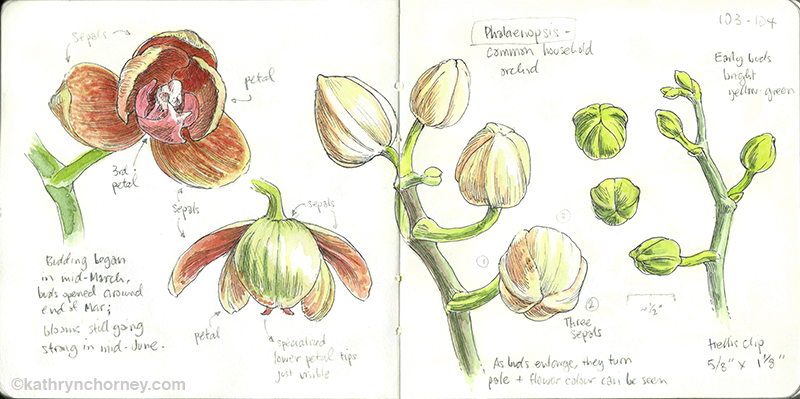 sepals
petal
3rd
petal
sepals
sepals
petal
specialized
lower petal tips
just visible
Budding began
in mid-March,
buds opened around
end of Mar;
blooms still going
strong in mid-June.
©kathrynchorney.com
Phalaenopsis -
common household
orchid
103-104
Early buds
bright
yellow-green
3
1
2
Three
sepals
~1/2"
As buds enlarge, they turn
pale + flower colour can be seen
trellis clip
5/8" x 1 1/8"